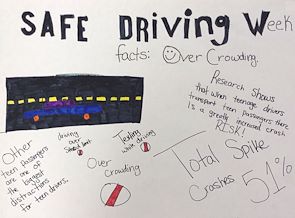 SAFE DRIVING Week
facts: Over Crowding.
Research Shows
that when teenage drivers
transport teen passengers there
is a greatly increased crash
RISK!
Other
teen passengers
are one of
the biggest
distractions
for teen drivers.
driving
over
Speed limit
Texting
while driving
Over
Crowding
Total Spike
Crashes 51%